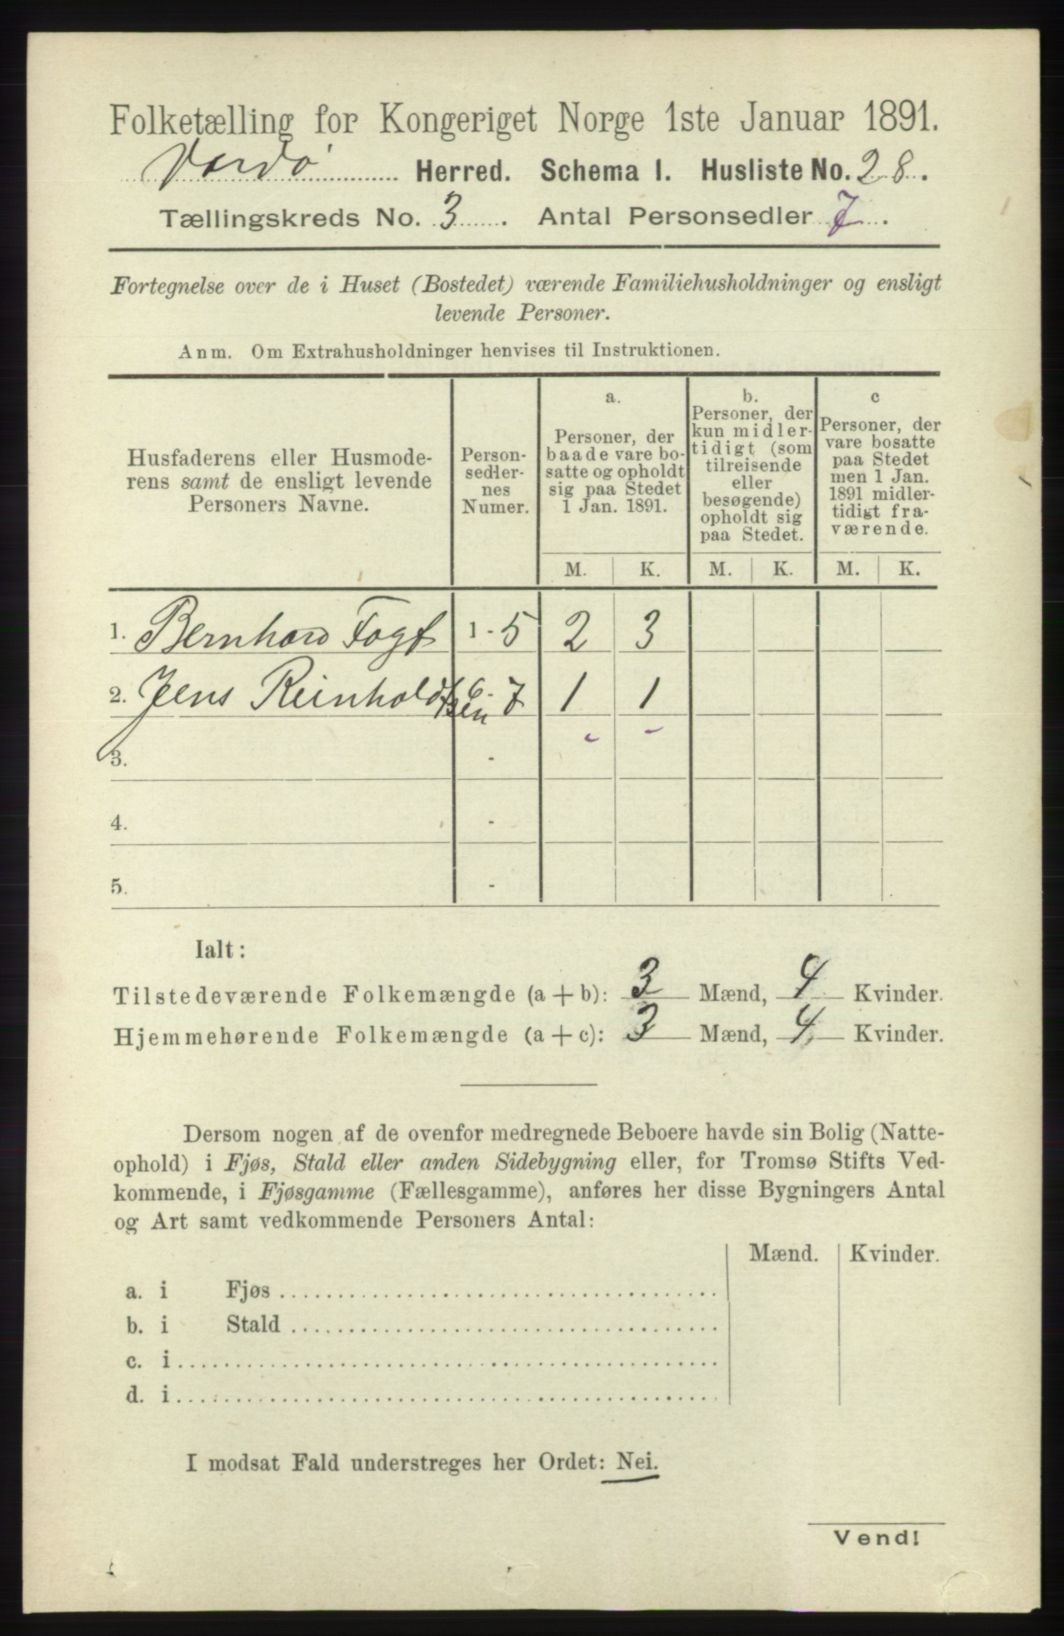 Folketælling for Kongeriget Norge 1ste Januar 1891.
Vardø Herred. Schema I. Husliste No. 28.
Tællingskreds No. 3. Antal Personsedler 7.
Fortegnelse over de i Huset (Bostedet) værende Familiehusholdninger og ensligt
levende Personer.
Anm. Om Extrahusholdninger henvises til Instruktionen.
Husfaderens eller Husmode-
rens samt de ensligt levende
Personers Navne.
Person-
sedler-
nes
Numer.
a.
Personer, der
baade vare bo-
satte og opholdt
sig paa Stedet
1 Jan. 1891.
b.
Personer, der
kun midler-
tidigt (som
tilreisende
eller
besøgende)
opholdt sig
paa Stedet.
c
Personer, der
vare bosatte
paa Stedet
men 1 Jan.
1891 midler-
tidigt fra-
værende.
M. K. M. K. M. K.
1. Bernhard Fogt 1 - 5 2 3
2. Jens Reinholdtsen 6 - 7 1 1
3. -
4. -
5. -
Ialt:
Tilstedeværende Folkemængde (a + b): 3 Mænd, 4 Kvinder.
Hjemmehørende Folkemængde (a + c): 3 Mænd, 4 Kvinder.
Dersom nogen af de ovenfor medregnede Beboere havde sin Bolig (Natte-
ophold) i Fjøs, Stald eller anden Sidebygning eller, for Tromsø Stifts Ved-
kommende, i Fjøsgamme (Fællesgamme), anføres her disse Bygningers Antal
og Art samt vedkommende Personers Antal:
Mænd. Kvinder.
a. i Fjøs
b. i Stald
c. i
d. i
I modsat Fald understreges her Ordet: Nei.
Vend!